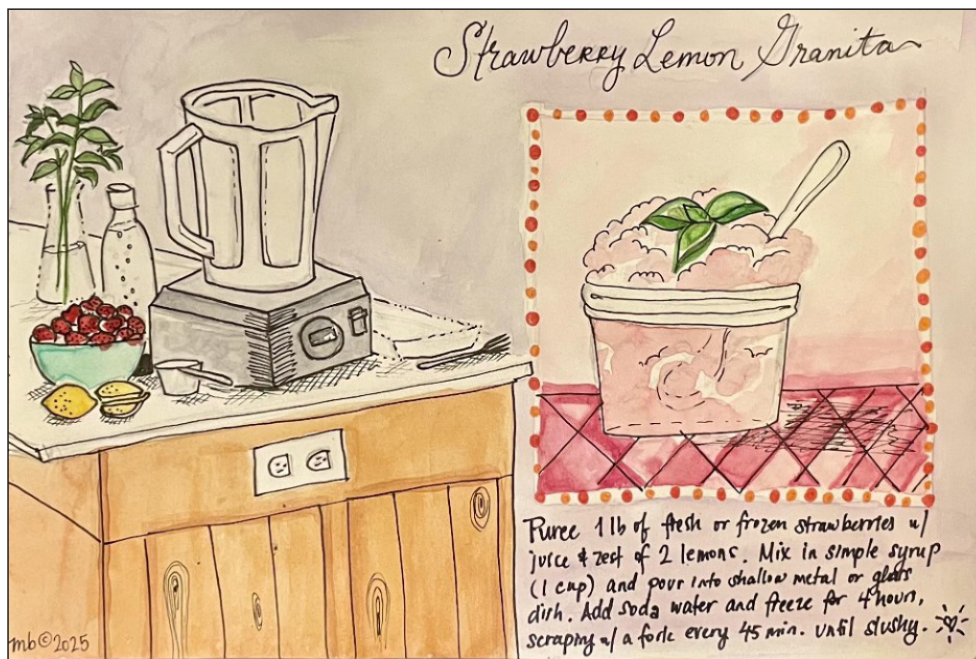 Strawberry Lemon Granita
Puree 1 lb of fresh or frozen strawberries w/
juice & zest of 2 lemons. Mix in simple syrup
(1 cup) and pour into shallow metal or glass
dish. Add soda water and freeze for 4 hours,
scraping w/ a fork every 45 min. until slushy.
mb©2025